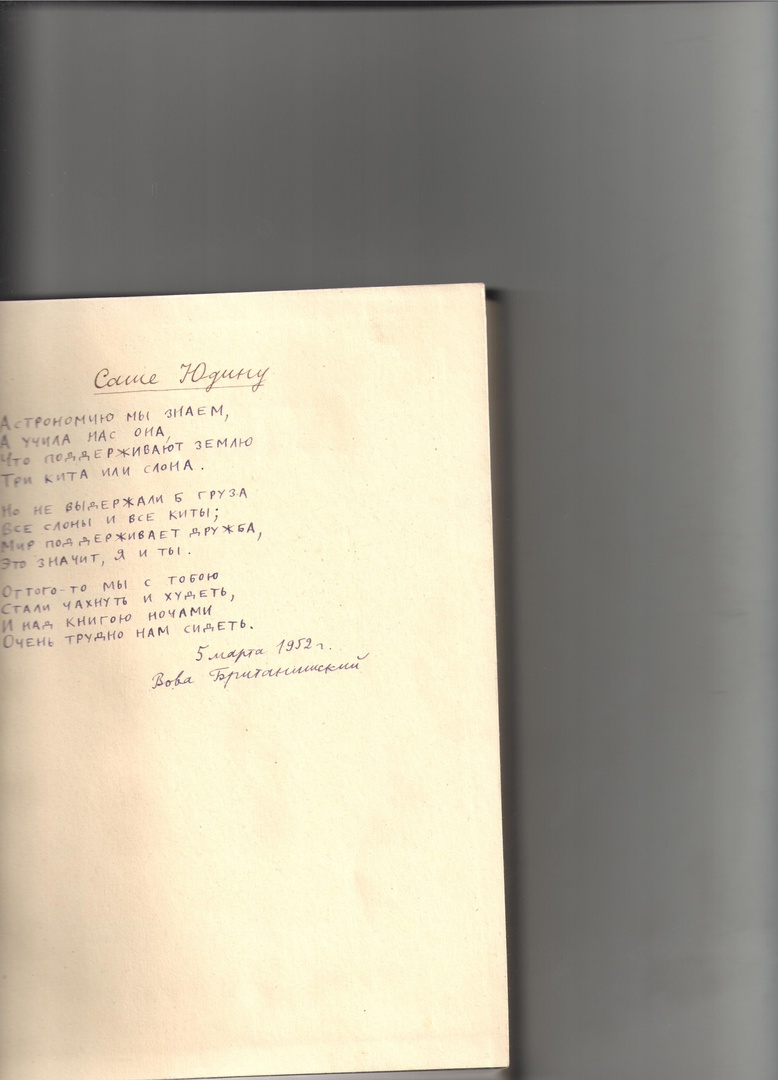 Саше Юдину
Астрономию мы знаем,
А учила нас она,
Что поддерживают землю
Три кита или слона.
Но не выдержали б груза
Все слоны и все киты;
Мир поддерживает дружба,
Это значит, я и ты.
Оттого-то мы с тобою
Стали чахнуть и худеть,
И над книгою ночами
Очень трудно нам сидеть.
5 марта 1952 г.
Вова Британишский